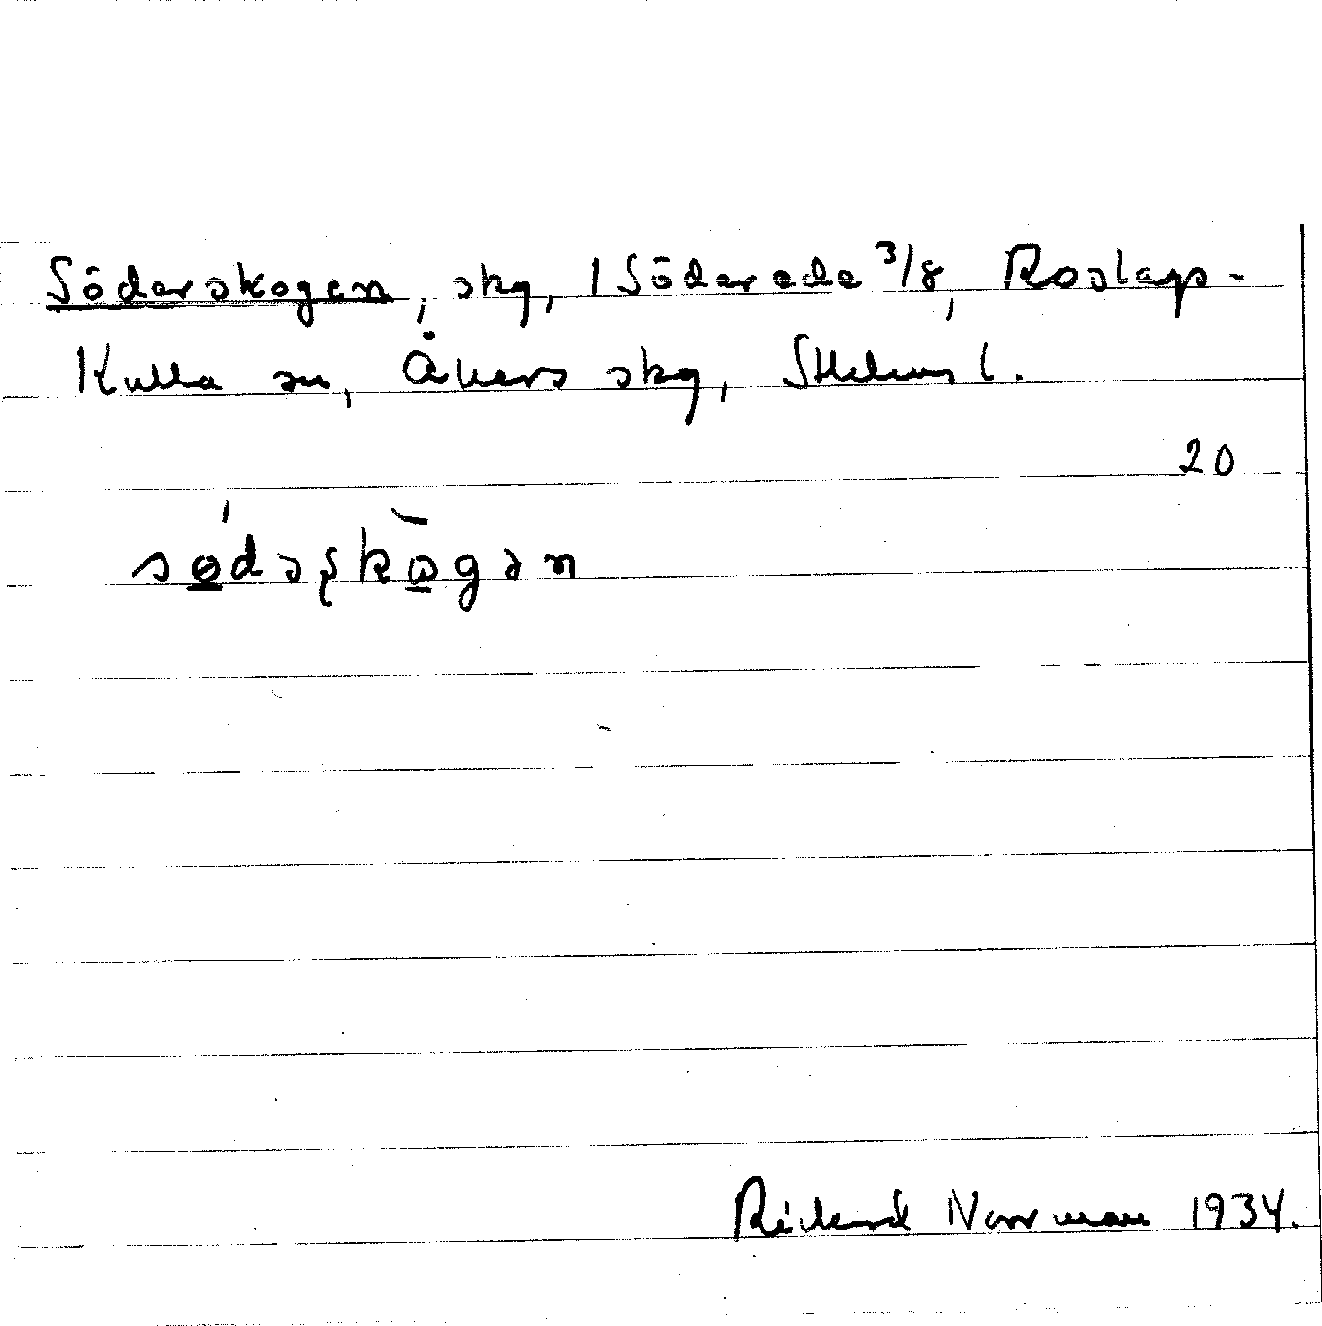 Söderskogen, skg, 1 Söderede 3/8, Roslags-
Kulla sn, Åkers skg, Sthlms l.
20
sødəʂkogən
Rickard Norrman 1934.